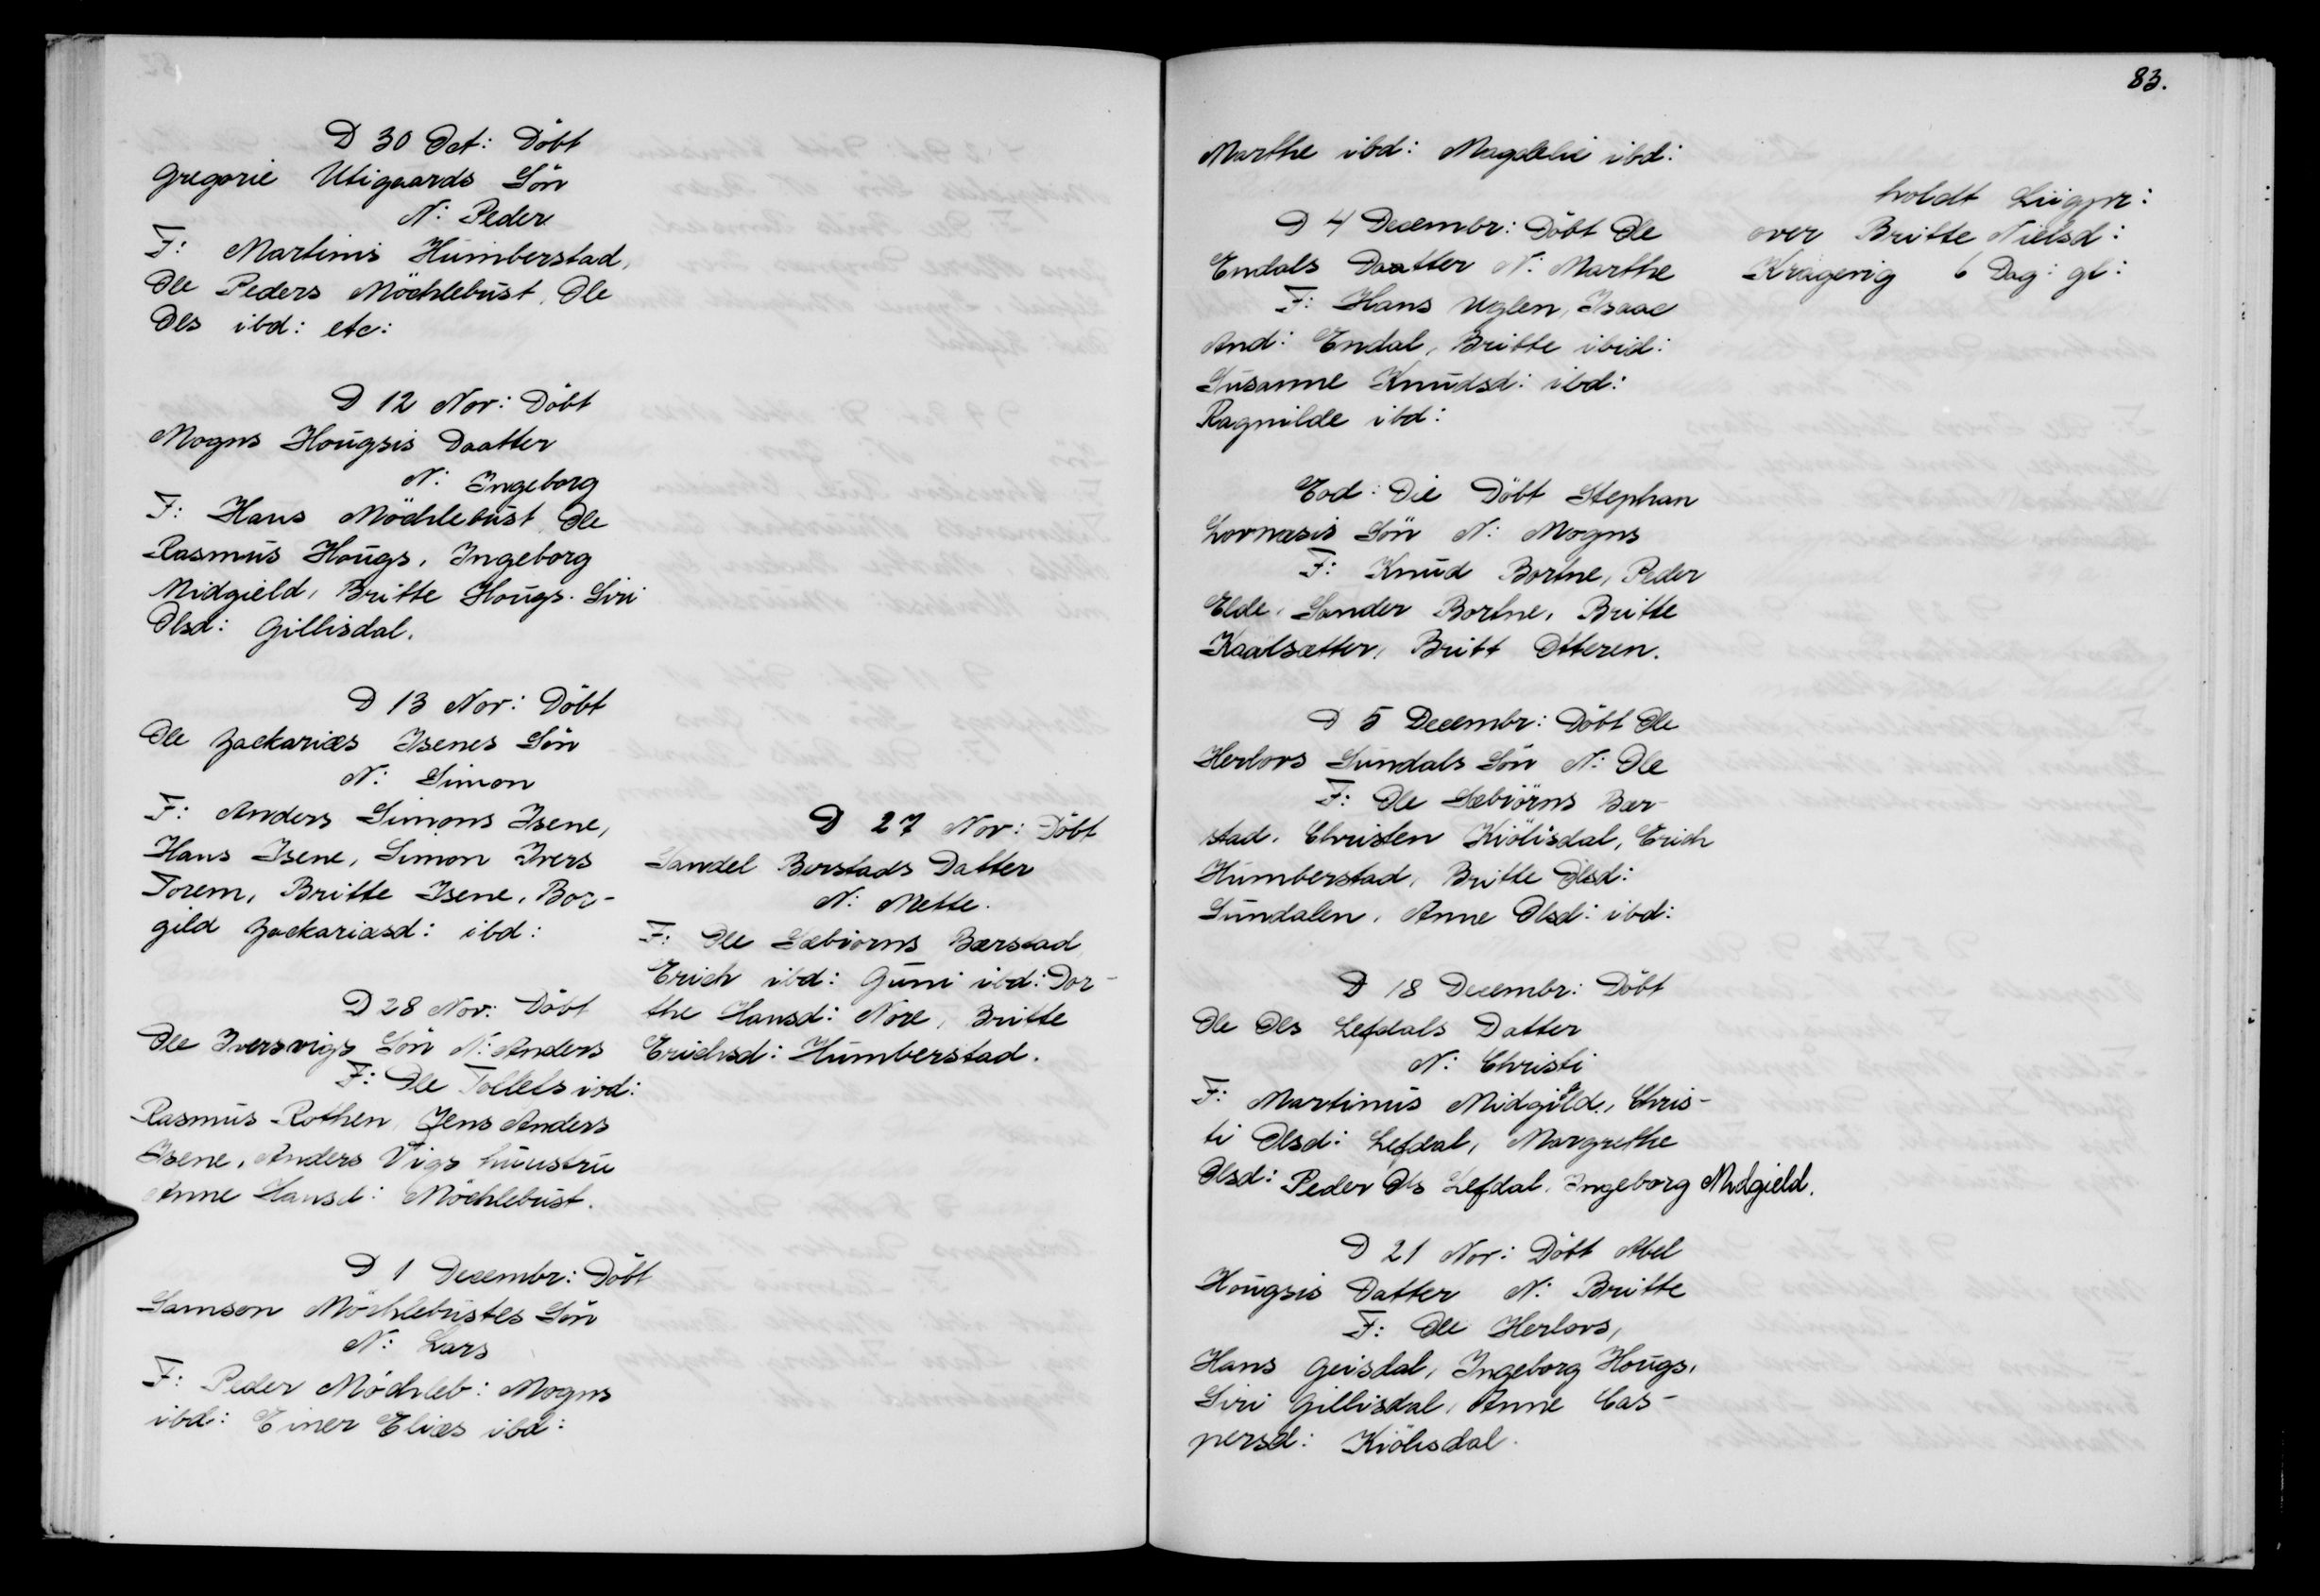 D 30 Oct: Döbt
Gregorie Utigaards Sön
N: Peder
F: Martinis Humberstad,
Ole Peders Möchlebust, Ole
Ols ibd: etc:
D 12 Nov: Döbt
Mogns Hougsis Daatter
N: Ingeborg
F: Hans Möchlebust, Ole
Rasmus Hougs, Ingeborg
Midgield, Britte Hougs. Siri
Olsd: Gillisdal.
D 13 Nov: Döbt
Ole Zackariæs Isenes Sön
N: Simon
F: Anders Simons Isene,
Hans Isene, Simon Ivers
Torem, Britte Isene, Bor-
gild Zackariasd: ibd:
D 28 Nov: Döbt
Ole Iversvigs Sön N: Anders
F: Ole Tollels ibd:
Rasmus Rothen, Jens Anders
Isene, Anders Vigs huustru
Anne Hansd: Möchlebust.
D 1 Decembr: Döbt
Samson Möchlebustes Sön
N: Lars
F: Peder Möchleb: Mogns
ibd: Einer Eliæs ibd:
D 27 Nov: Döbt
Sandel Borstads Datter
N: Mette.
F: Ole Sæbiorns Bærstad,
Erich ibd: Guni ibd: Dor-
the Hansd: Nore, Britte
Erichsd: Humberstad.
83.
Marthe ibd: Magdelie ibd:
D 4 Decembr: Döbt Ole
Endals Daatter N: Marthe
F: Hans Uglen, Isaac
And: Endal, Britte ibid:
Susanne Knudsd: ibd:
Ragnilde ibd:
Eod: Die Döbt Stephan
Lovnæsis Sön N: Mogns
F: Knud Bortne, Peder
Elde, Sander Bortne, Britte
Kaalsætter, Britt Otteren.
D 5 Decembr: Döbt Ole
Herlovs Sundals Sön N: Ole
F: Ole Sæbiörns Bær-
stad, Christen Kiölisdal, Erich
Humberstad, Britte Olsd:
Sundalen, Anne Olsd: ibd:
D 18 Decembr: Döbt
Ole Ols Lefdals Datter
N: Christi
F: Martinus Midgield, Chris-
ti Olsd: Lefdal, Margrethe
Olsd: Peder Ols Lefdal, Ingeborg Midgield.
D 21 Nov: Döbt Abel
Hougsis Datter N: Britte
F: Ole Herlovs,
Hans Geisdal, Ingeborg Hougs,
Siri Gillisdal, Anne Cas-
persd: Kiölisdal.
holdt Liigpr:
over Britte Nielsd:
Kragevig 6 Dag: gl: